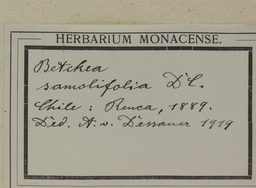 HERBARIUM MONACENSE.
Betckea
samolifolia DC.
Chile: Renca, 1889.
Ded. A. v. Dessauer 1919